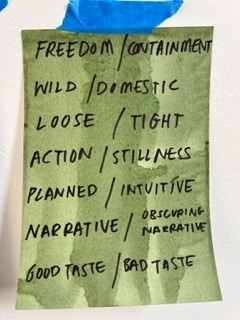 FREEDOM / CONTAINMENT
WILD / DOMESTIC
LOOSE / TIGHT
ACTION / STILLNESS
PLANNED / INTUITIVE
NARRATIVE / OBSCURING
NARRATIVE
GOOD TASTE / BAD TASTE